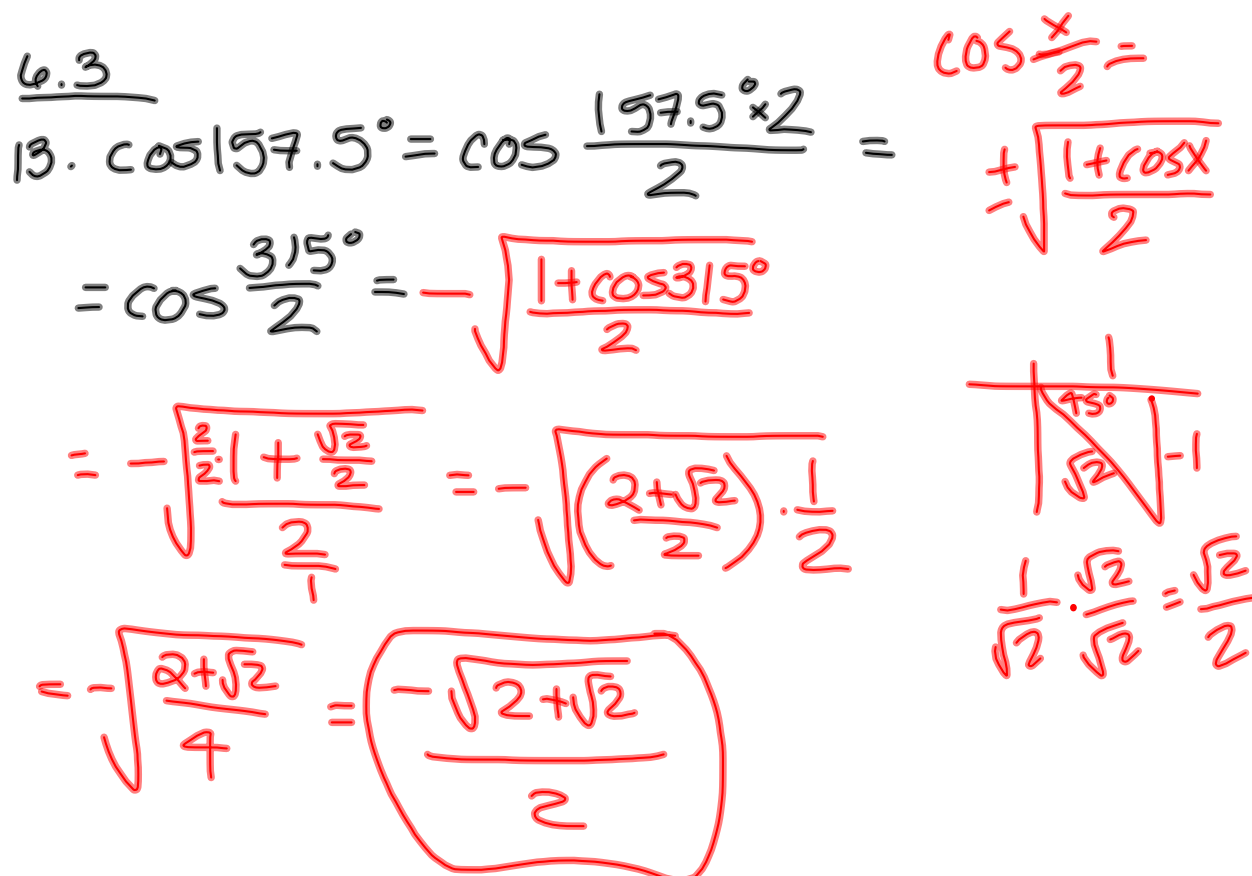 6.3
13. cos157.5° = cos (157.5°×2)/2 =
= cos 315°/2 = -√((1+cos315°)/2)
= -√((2/2·1 + √2/2)/(2/1)) = -√(((2+√2)/2)·1/2)
= -√((2+√2)/4) = -√(2+√2)/2
cos x/2 =
±√((1+cosx)/2)
1
45°
√2 -1
1/√2 · √2/√2 = √2/2